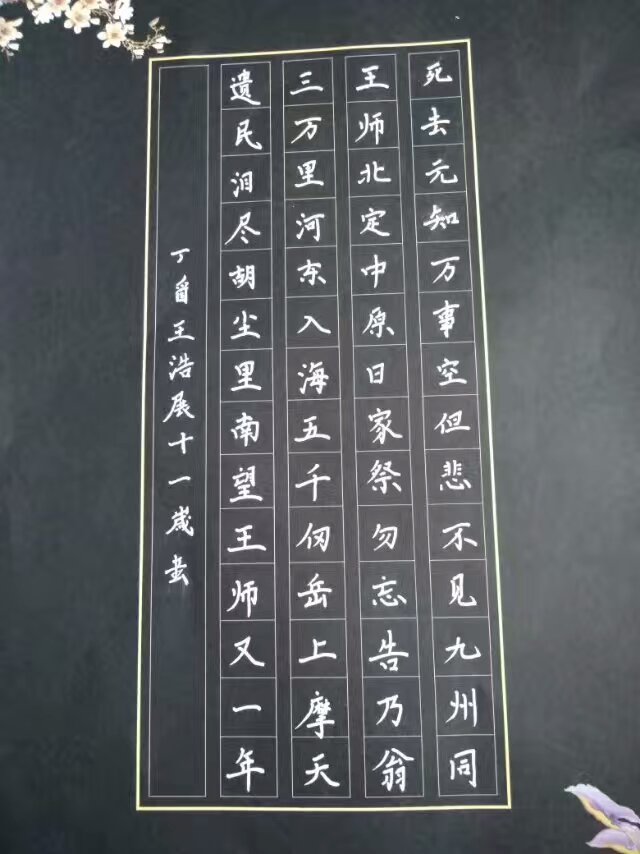 死去元知万事空但悲不见九州同
王师北定中原日家祭勿忘告乃翁
三万里河东入海五千仞岳上摩天
遗民泪尽胡尘里南望王师又一年
丁酉王浩展十一岁书